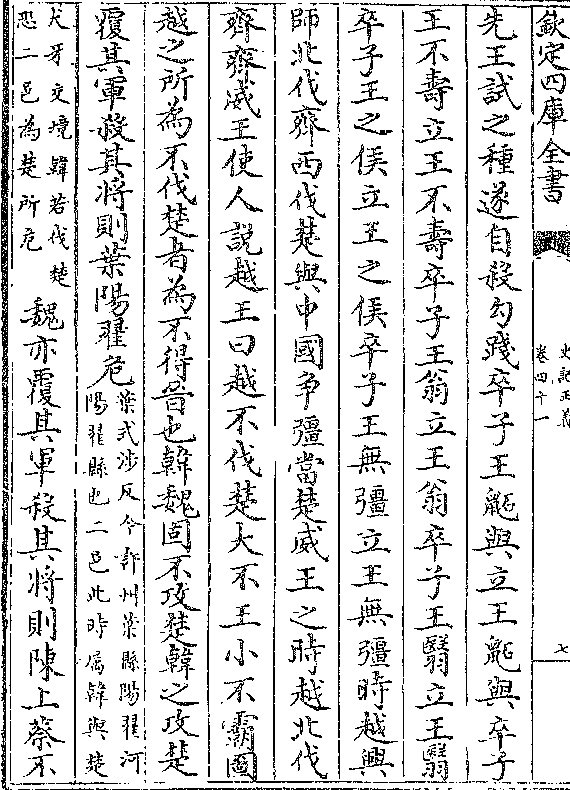 欽定四庫全書
史記正義
卷四十一
七
先王試之種遂自殺勾踐卒子王鼫與立王鼫與卒子
王不壽立王不壽卒子王翁立王翁卒子王翳立王翳
卒子王之侯立王之侯卒子王無彊立王無彊時越興
師北伐齊西伐楚與中國爭彊當楚威王之時越北伐
齊齊威王使人説越王曰越不伐楚大不王小不霸圖
越之所為不伐楚者為不得晉也韓魏固不攻楚韓之攻楚
覆其軍殺其將則葉陽翟危
葉式涉反今許州葉縣陽翟河
陽翟縣也二邑此時屬韓與楚
犬牙交境韓若伐楚
恐二邑為楚所危
魏亦覆其軍殺其將則陳上蔡不